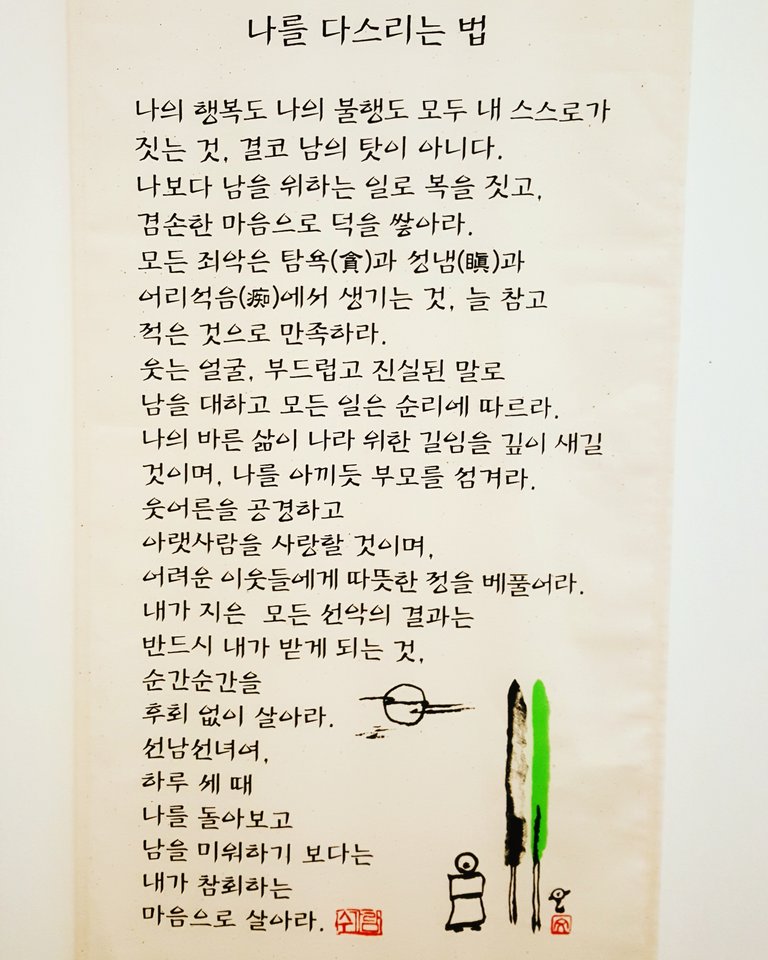 나를 다스리는 법
나의 행복도 나의 불행도 모두 내 스스로가
짓는 것, 결코 남의 탓이 아니다.
나보다 남을 위하는 일로 복을 짓고,
겸손한 마음으로 덕을 쌓아라.
모든 죄악은 탐욕(貪)과 성냄(瞋)과
어리석음(痴)에서 생기는 것, 늘 참고
적은 것으로 만족하라.
웃는 얼굴, 부드럽고 진실된 말로
남을 대하고 모든 일은 순리에 따르라.
나의 바른 삶이 나라 위한 길임을 깊이 새길
것이며, 나를 아끼듯 부모를 섬겨라.
웃어른을 공경하고
아랫사람을 사랑할 것이며,
어려운 이웃들에게 따뜻한 정을 베풀어라.
내가 지은 모든 선악의 결과는
반드시 내가 받게 되는 것,
순간순간을
후회 없이 살아라.
선남선녀여,
하루 세 때
나를 돌아보고
남을 미워하기 보다는
내가 참회하는
마음으로 살아라.